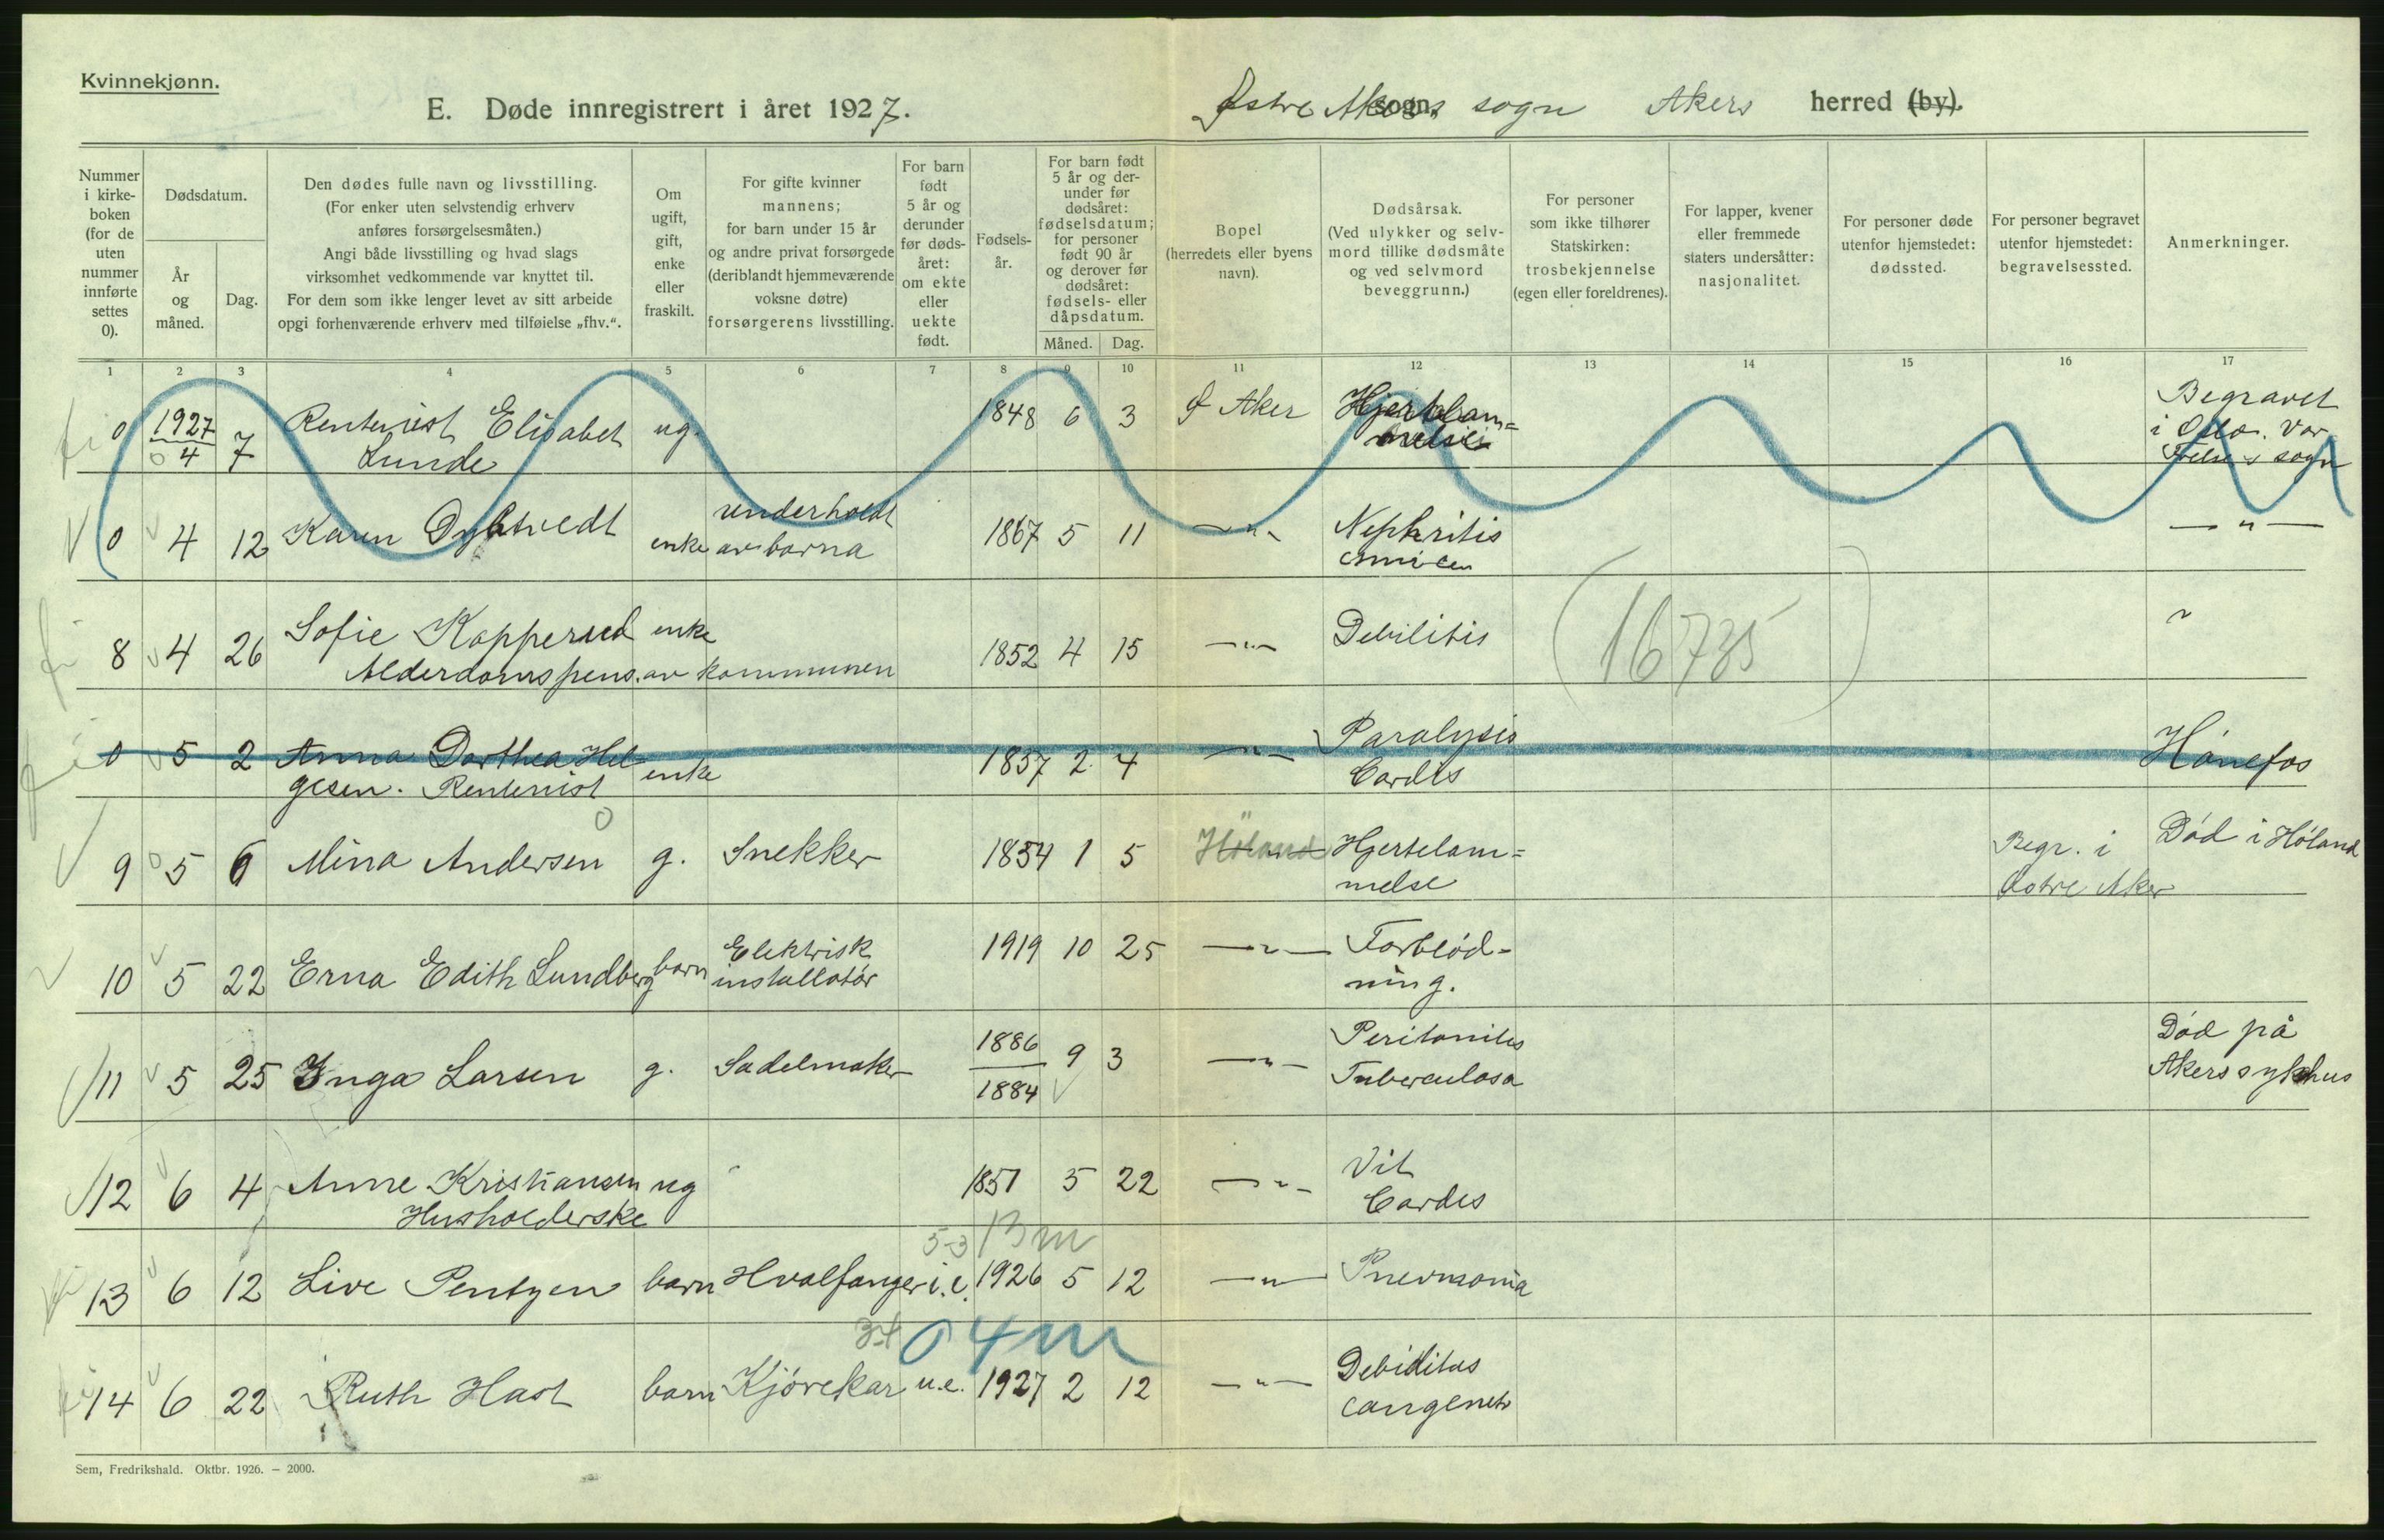 Kvinnekjønn.
E. Døde innregistrert i året 1927.
Østre Akers sogn Akers herred (by).
Nummer i kirke-boken (for de uten nummer innførte settes 0).
Dødsdatum.
År og måned.
Dag.
Den dødes fulle navn og livsstilling.
(For enker uten selvstendig erhverv
anføres forsørgelsesmåten.)
Angi både livsstilling og hvad slags
virksomhet vedkommende var knyttet til.
For dem som ikke lenger levet av sitt arbeide
opgi forhenværende erhverv med tilføielse „fhv.“.
Om ugift, gift, enke eller fraskilt.
For gifte kvinner
mannens;
for barn under 15 år
og andre privat forsørgede
(deriblandt hjemmeværende
voksne døtre)
forsørgerens livsstilling.
For barn født 5 år og derunder før døds-året: om ekte eller uekte født.
Fødsels-år.
For barn født 5 år og der-under før dødsåret: fødselsdatum; for personer født 90 år og derover før dødsåret: fødsels- eller dåpsdatum.
Måned. Dag.
Bopel
(herredets eller byens
navn).
Dødsårsak.
(Ved ulykker og selv-
mord tillike dødsmåte
og ved selvmord
beveggrunn.)
For personer
som ikke tilhører
Statskirken:
trosbekjennelse
(egen eller foreldrenes).
For lapper, kvener
eller fremmede
staters undersåtter:
nasjonalitet.
For personer døde
utenfor hjemstedet:
dødssted.
For personer begravet
utenfor hjemstedet:
begravelsessted.
Anmerkninger.
1 2 3 4 5 6 7 8 9 10 11 12 13 14 15 16 17
0 1927 4 7 Rentenist Elisabet Lunde ug. 1848 6 3 Ø Aker Hjertelam=melse Begravet i Oslo. Vor Frelsers sogn
0 4 12 Karen Dybtvedt enke underholdt av barna 1867 5 11 —"— Nephritis —"—
8 4 26 Sofie Kopperud enke
Alderdomspens. av kommunen 1852 4 15 —"— Debilitis (16735) "
0 5 2 Anna Dorthea Hel=gesen. Rentenist enke 1857 2 4 —"— Paralysis Cordis Hónefos
9 5 6 Mina Andersen g. Snekker 1854 1 5 Höland Hjertelam=melse Begr. i Østre Aker Död i Höland
10 5 22 Erna Edith Lundberg barn Elektrisk installatór 1919 10 25 —"— Forblód=ning.
11 5 25 Inga Larsen g. Sadelmaker 1886 1884 9 3 —"— Peritonites Tuberculosa Dód på Akers sykehus
12 6 4 Anne Kristiansen ug
Husholderske 1851 5 22 —"— Vit Cordis
53 13 m
13 6 12 Live Pentzen barn Hvalfanger i.e. 1926 5 12 —"— Pnevmonia
34 0 4 m
14 6 22 Ruth Hast barn Kjórekar u.e. 1927 2 12 —"— Debiditas congenets
Sem, Fredrikshald. Oktbr. 1926. — 2000.